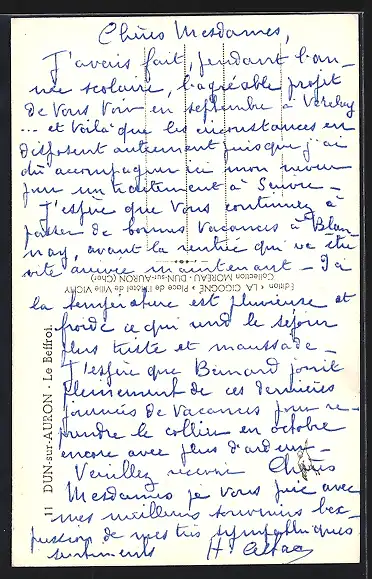 Chères Mesdames,
J'avais fait, pendant l'an-
née scolaire, l'agréable projet
de vous voir en septembre à Vézelay
... et voilà que les circonstances en
disposent autrement puisque j'ai
dû accompagner ici mon neveu
pour un traitement à suivre -
J'espère que vous continuez à
passer de bonnes vacances à Blan-
nay, avant la rentrée qui va être
vite arrivée maintenant - Ici
la température est pluvieuse et
froide ce qui rend le séjour
plus triste et maussade -
J'espère que Bernard jouit
pleinement de ces dernières
journées de vacances pour re-
prendre le collier en octobre
encore avec plus d'ardeur -
Veuillez recevoir Chères
Mesdames je vous prie avec
mes meilleurs souvenirs l'ex-
pression de mes très sympathiques
sentiments H.
Edition « LA CIGOGNE » Place de l'Hôtel de Ville VICHY
Collection MOREAU - DUN-sur-AURON (Cher)
11 DUN-sur-AURON - Le Beffroi.